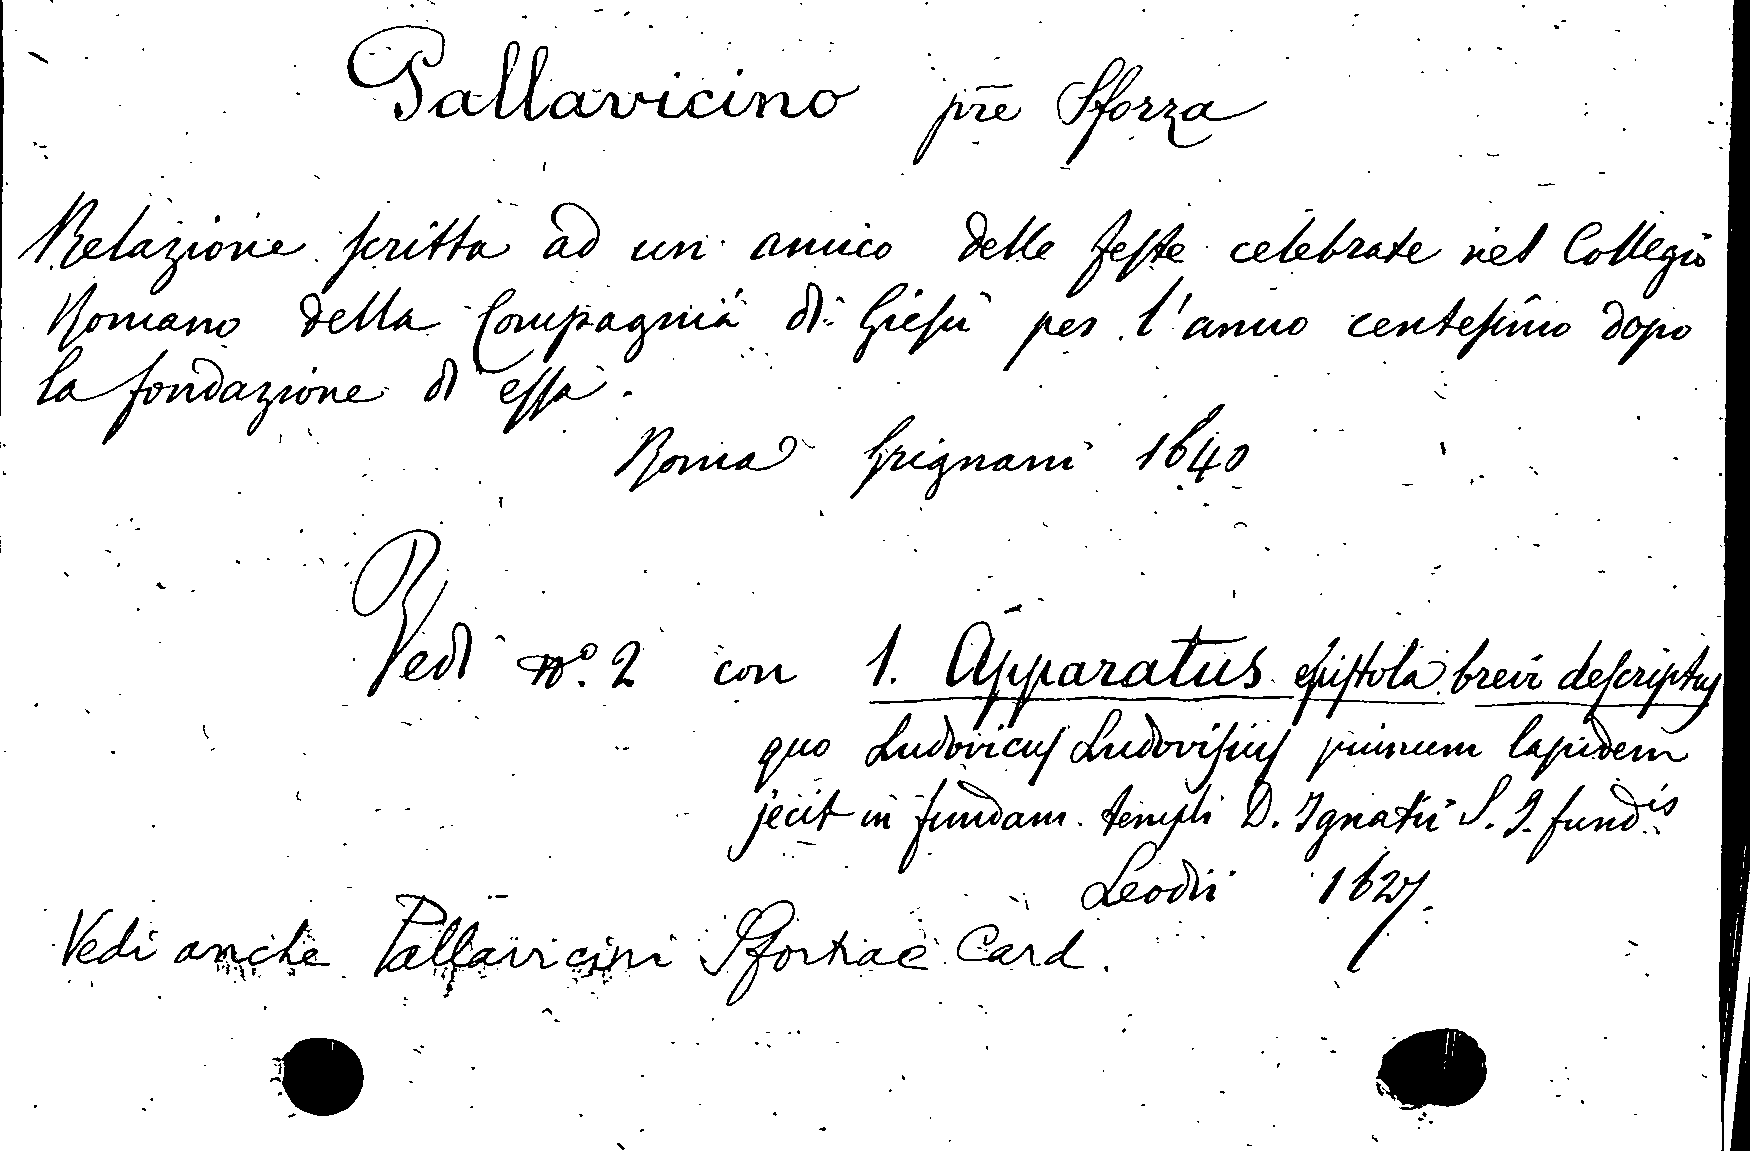 Pallavicino p͞re Sforza
Relazione scritta ad un amico delle feste celebrate nel Collegio
Romano della Compagnia di Giesù per l'anno centesimo dopo
la fondazione di essa.
Roma Grignani 1640
Vedi n.º 2 con 1. Apparatus epistola brevi descriptus
quo Ludovicus Ludovisius primum lapidem
jecit in fundam. templi D. Ignatii S. J. fund.is
Leodii 1627.
Vedi anche Pallavicini Sfortiae Card.